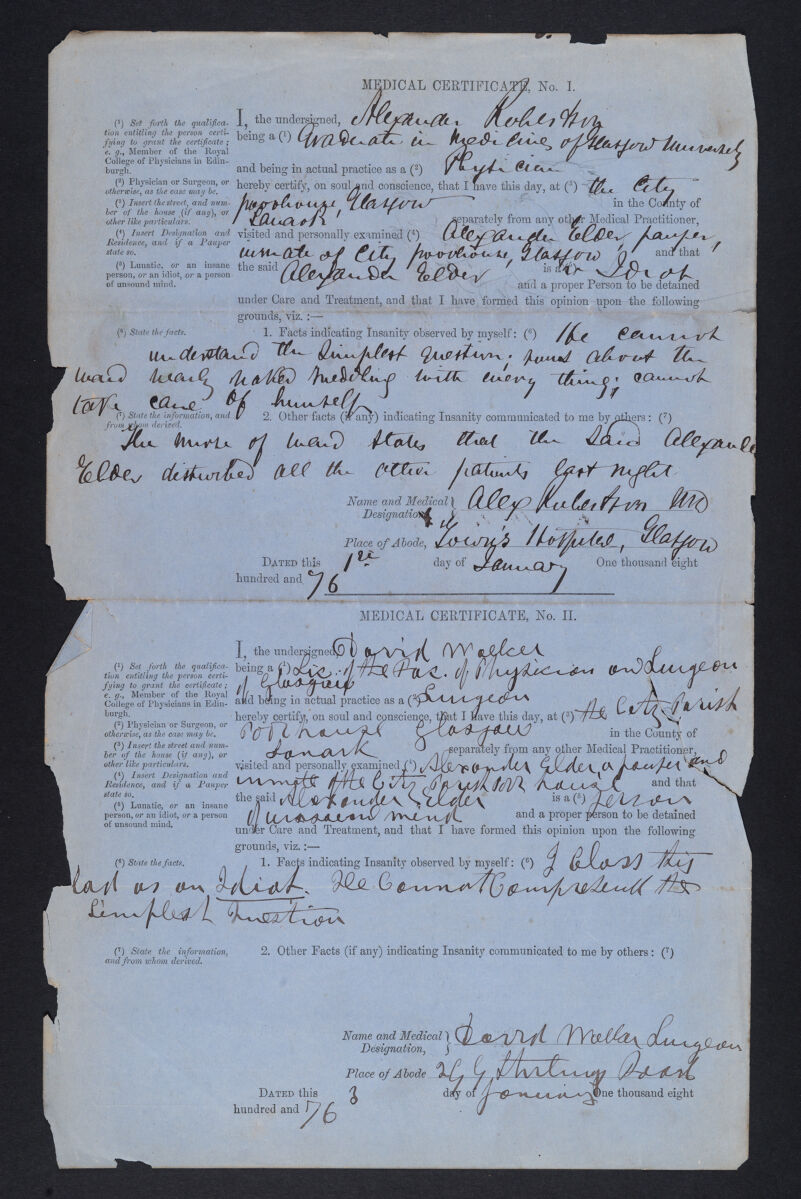 MEDICAL CERTIFICATE, No. I.
(1) Set forth the qualifica-
tion entitling the person certi-
fying to grant the certificate;
e. g., Member of the Royal
College of Physicians in Edin-
burgh.
(2) Physician or Surgeon, or
otherwise, as the case may be.
(3) Insert the street, and num-
ber of the house (if any), or
other like particulars.
(4) Insert Designation and
Residence, and if a Pauper
state so.
(5) Lunatic, or an insane
person, or an idiot, or a person
of unsound mind.
I, the undersigned, Alexander Robertson
being a (1) Graduate in Medicine of Glasgow University
and being in actual practice as a (2) Physician
hereby certify, on soul and conscience, that I have this day, at (3) the City
poorhouse, Glasgow in the County of
Lanark separately from any other Medical Practitioner,
visited and personally examined (4) Alexander Elder, pauper,
inmate of City poorhouse, Glasgow, and that
the said Alexander Elder is a(n) Idiot
and a proper Person to be detained
under Care and Treatment, and that I have formed this opinion upon the following
grounds, viz. :—
(6) State the facts.
1. Facts indicating Insanity observed by myself: (6) He cannot
understand the simplest question; runs about the
ward nearly naked meddling with every thing; cannot
take care of himself
(7) State the information, and
from whom derived.
2. Other facts (if any) indicating Insanity communicated to me by others: (7)
The nurse of ward states that the said Alexander
Elder disturbed all the other patients last night
Name and Medical Designation, Alex Robertson MD
Place of Abode, Town's Hospital, Glasgow
DATED this 1st day of January One thousand eight
hundred and 76
MEDICAL CERTIFICATE, No. II.
(1) Set forth the qualifica-
tion entitling the person certi-
fying to grant the certificate;
e. g., Member of the Royal
College of Physicians in Edin-
burgh.
(2) Physician or Surgeon, or
otherwise, as the case may be.
(3) Insert the street and num-
ber of the house (if any), or
other like particulars.
(4) Insert Designation and
Residence, and if a Pauper
state so.
(5) Lunatic, or an insane
person, or an idiot, or a person
of unsound mind.
I, the undersigned, David Walker
being a (1) Lic. of the Fac. of Physicians and Surgeon
of Glasgow
and being in actual practice as a (2) Surgeon
hereby certify, on soul and conscience, that I have this day, at (3) the City Parish
Poorhouse Glasgow in the County of
Lanark separately from any other Medical Practitioner,
visited and personally examined (4) Alexander Elder, a pauper and
inmate of the City Parish Poor house and that
the said Alexander Elder is a (5) person
of unsound mind and a proper person to be detained
under Care and Treatment, and that I have formed this opinion upon the following
grounds, viz. :—
(6) State the facts.
1. Facts indicating Insanity observed by myself: (6) I Class this
lad as an Idiot. He Cannot Comprehend the
Simplest Question
(7) State the information,
and from whom derived.
2. Other Facts (if any) indicating Insanity communicated to me by others: (7)
Name and Medical Designation, David Walker Surgeon
Place of Abode Stirling Road
DATED this 3 day of January One thousand eight
hundred and 76